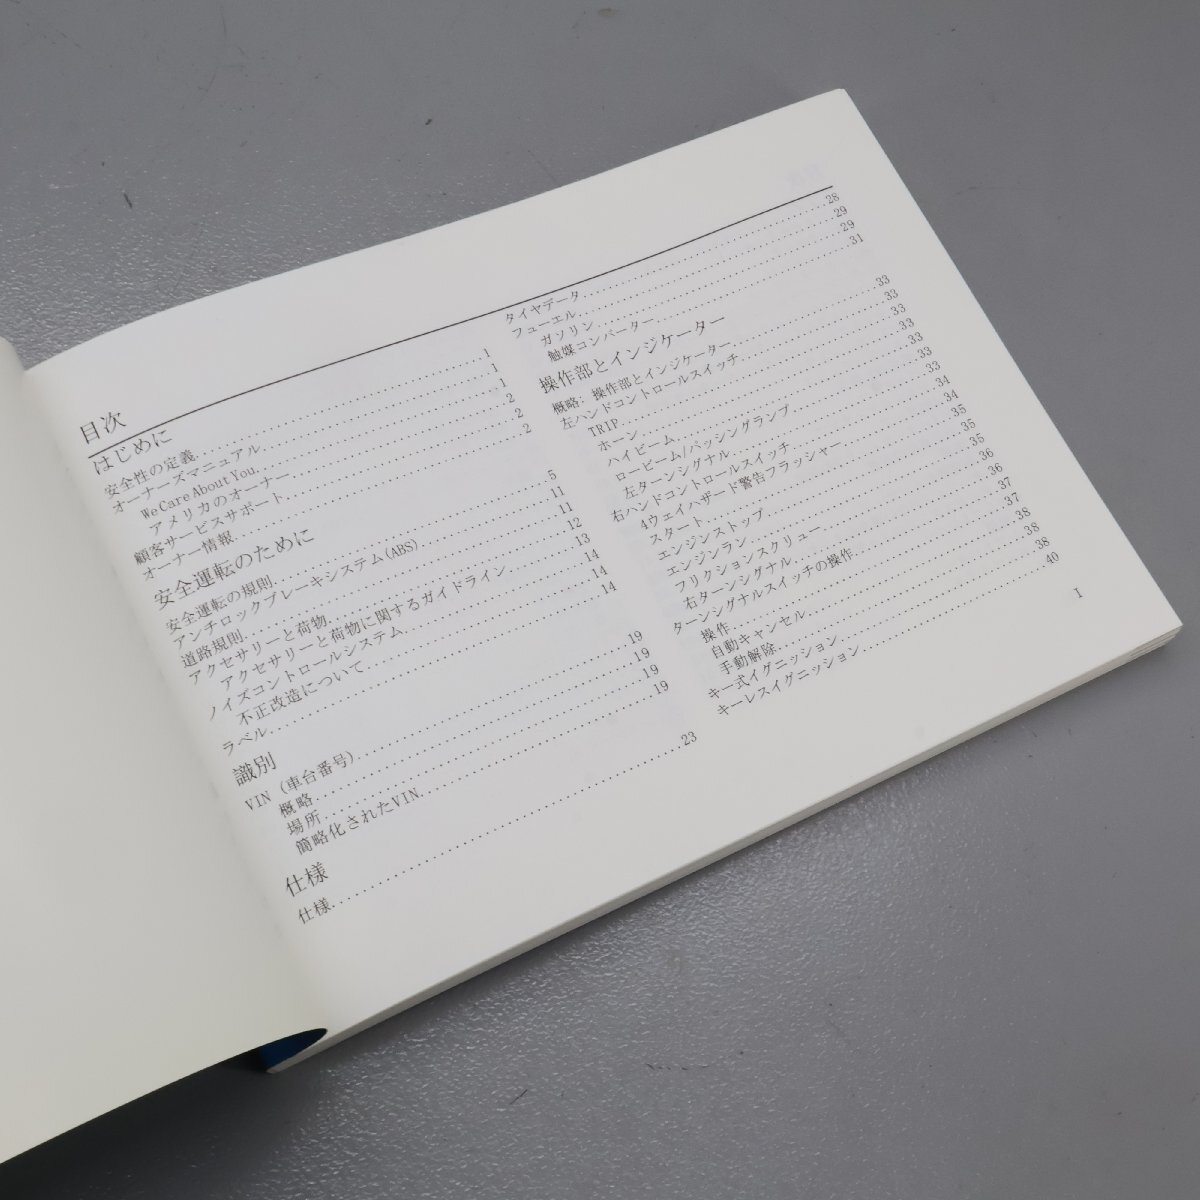 目次
はじめに
安全性の定義..........1
オーナーズマニュアル..........1
We Care About You..........1
アメリカのオーナー..........2
顧客サービスサポート..........2
オーナー情報..........2
安全運転のために
安全運転の規則..........5
アンチロックブレーキシステム(ABS)..........11
道路規則..........11
アクセサリーと荷物..........12
アクセサリーと荷物に関するガイドライン..........13
ノイズコントロールシステム..........14
不正改造について..........14
ラベル..........14
識別
VIN (車台番号)..........19
概略..........19
場所..........19
簡略化されたVIN..........19
仕様
仕様..........23
タイヤデータ..........28
フューエル..........29
ガソリン..........29
触媒コンバーター..........31
操作部とインジケーター
概略: 操作部とインジケーター..........33
左ハンドコントロールスイッチ..........33
TRIP..........33
ホーン..........33
ハイビーム..........33
ロービーム/パッシングランプ..........33
左ターンシグナル..........33
右ハンドコントロールスイッチ..........34
4ウェイハザード警告フラッシャー..........34
スタート..........35
エンジンストップ..........35
エンジンラン..........35
フリクションスクリュー..........36
右ターンシグナル..........36
ターンシグナルスイッチの操作..........37
操作..........37
自動キャンセル..........38
手動解除..........38
キー式イグニッション..........38
キーレスイグニッション..........40
I